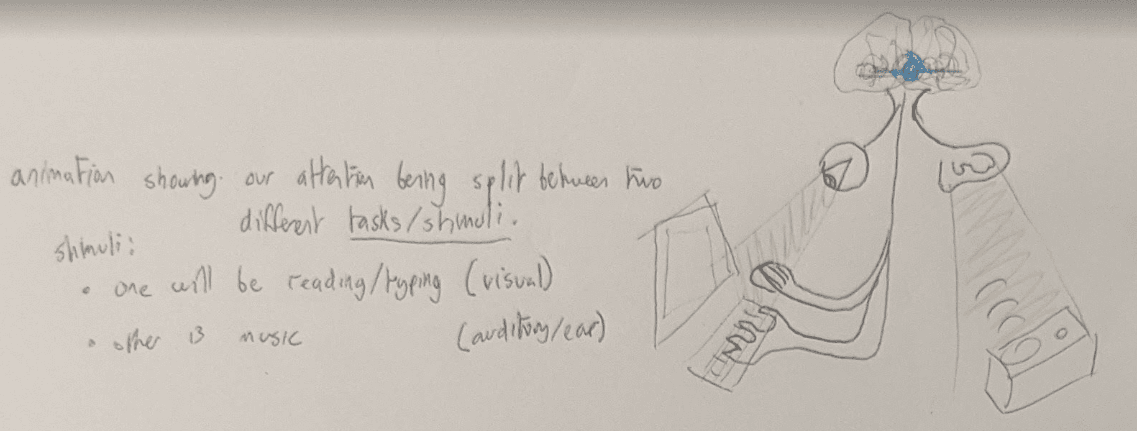 animation showing our attention being split between two
different tasks/stimuli.
stimuli:
• one will be reading/typing (visual)
• other is music (auditory/ear)